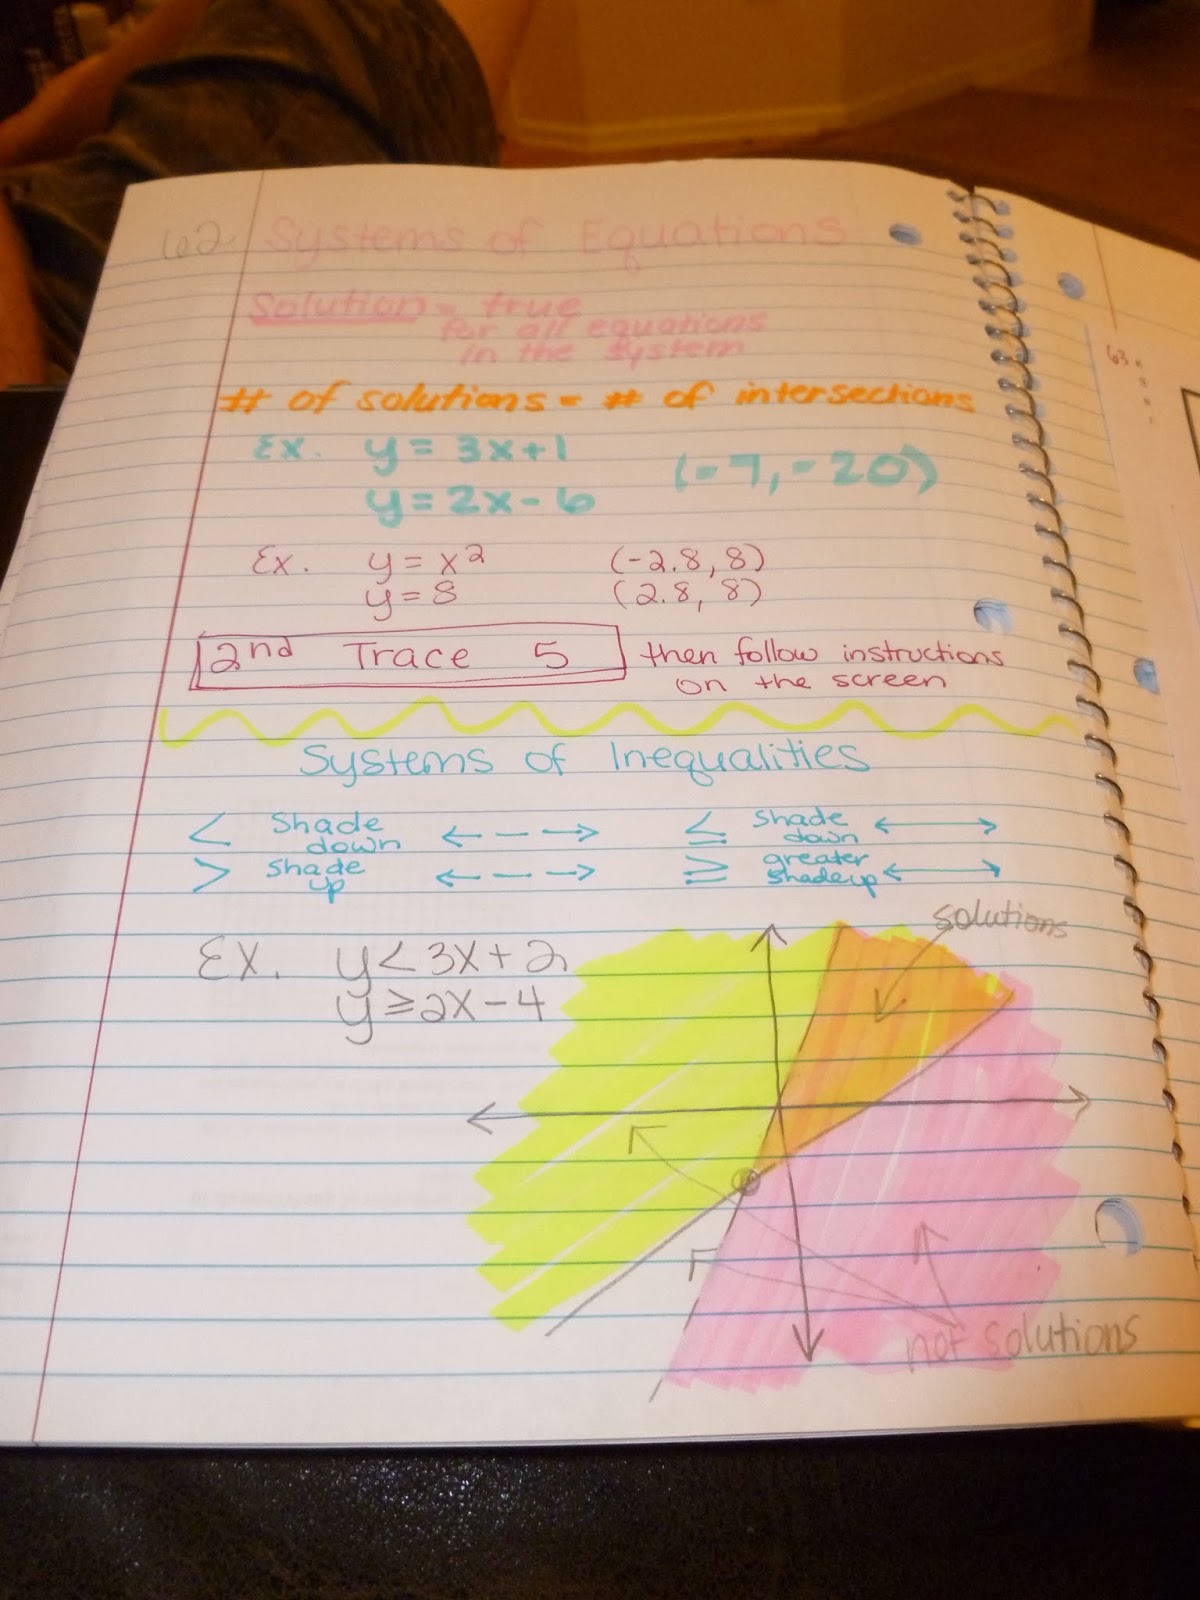 62 Systems of Equations
Solution = true
for all equations
in the system
# of solutions = # of intersections
Ex. y = 3x+1
y = 2x-6
(-7,-20)
Ex. y = x²
y = 8
(-2.8, 8)
(2.8, 8)
2nd Trace 5 then follow instructions
on the screen
Systems of Inequalities
< Shade
down
> Shade
up
≤ Shade
down
≥ greater
shade up
Ex. y<3x+2
y≥2x-4
solutions
not solutions
63